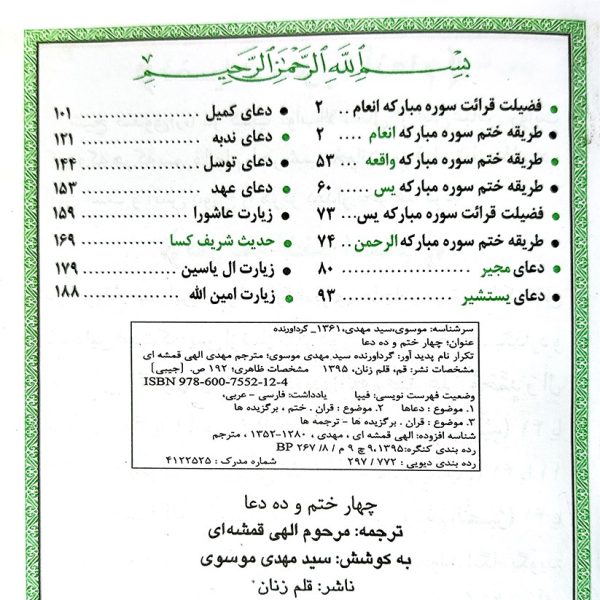 بسم الله الرحمن الرحیم
فضیلت قرائت سوره مبارکه انعام... ۲
طریقه ختم سوره مبارکه انعام .... ۲
طریقه ختم سوره مبارکه واقعه ... ۵۳
طریقه ختم سوره مبارکه یس ... ۶۰
فضیلت قرائت سوره مبارکه یس... ۷۳
طریقه ختم سوره مبارکه الرحمن.. ۷۴
دعای مجیر ..................... ۸۰
دعای یستشیر .................. ۹۳
دعای کمیل ................... ۱۰۱
دعای ندبه .................. ۱۲۱
دعای توسل ................ ۱۴۴
دعای عهد .................. ۱۵۳
زیارت عاشورا .............. ۱۵۹
حدیث شریف کسا ........... ۱۶۹
زیارت ال یاسین ............. ۱۷۹
زیارت امین الله ............... ۱۸۸
سرشناسه: موسوی،سید مهدی،۱۳۶۱_ گردآورنده
عنوان؛ چهار ختم و ده دعا
تکرار نام پدید آور: گردآورنده سید مهدی موسوی؛ مترجم مهدی الهی قمشه ای
مشخصات نشر: قم، قلم زنان، ۱۳۹۵ مشخصات ظاهری؛ ۱۹۲ ص. [جیبی]
ISBN 978-600-7552-12-4
وضعیت فهرست نویسی: فیپا یادداشت: فارسی - عربی،
۱. موضوع : دعاها ۲. موضوع : قران . ختم ، برگزیده ها
۳. موضوع : قران . برگزیده ها - ترجمه ها
شناسه افزوده: الهی قمشه ای ، مهدی ، ۱۲۸۰-۱۳۵۲ ، مترجم
رده بندی کنگره:۱۳۹۵، ۹ چ ۹ م / ۸/ ۲۶۷ BP
رده بندی دیویی : ۷۷۲ / ۲۹۷ شماره مدرک : ۴۱۲۲۵۲۵
چهار ختم و ده دعا
ترجمه: مرحوم الهی قمشه‌ای
به کوشش: سید مهدی موسوی
ناشر: قلم زنان